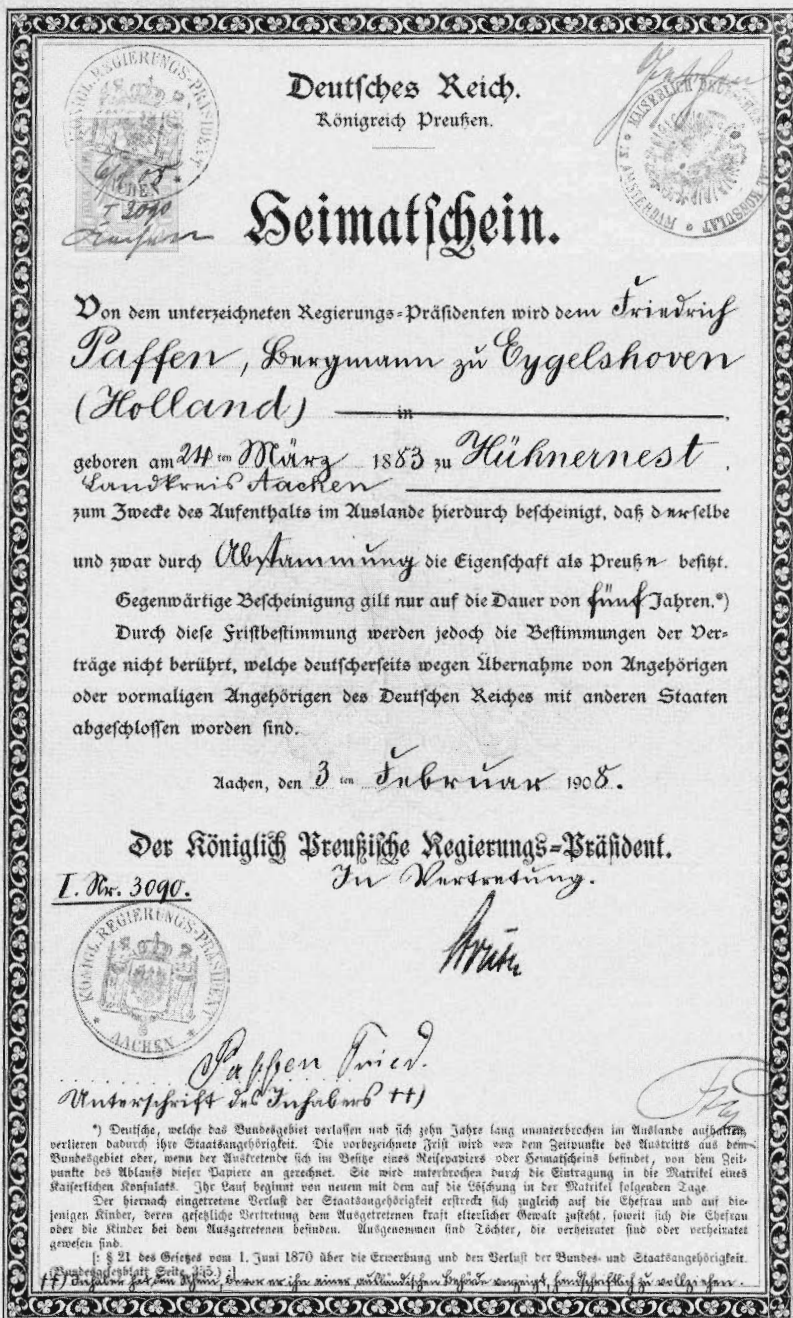 KÖNIGL. REGIERUNGS-PRÄSIDENT
AACHEN
3090
Aachen
KAISERLICH DEUTSCHES GENERAL KONSULAT
AMSTERDAM
Deutsches Reich.
Königreich Preußen.
Heimatschein.
Von dem unterzeichneten Regierungs-Präsidenten wird dem Friedrich
Paffen, Bergmann zu Eygelshoven
(Holland) in
geboren am 24ten März 1883 zu Hühnernest,
Landkreis Aachen
zum Zwecke des Aufenthalts im Auslande hierdurch bescheinigt, daß derselbe
und zwar durch Abstammung die Eigenschaft als Preuße besitzt.
Gegenwärtige Bescheinigung gilt nur auf die Dauer von fünf Jahren.*)
Durch diese Fristbestimmung werden jedoch die Bestimmungen der Ver-
träge nicht berührt, welche deutscherseits wegen Übernahme von Angehörigen
oder vormaligen Angehörigen des Deutschen Reiches mit anderen Staaten
abgeschlossen worden sind.
Aachen, den 3ten Februar 1908.
Der Königlich Preußische Regierungs-Präsident.
In Vertretung.
I. Nr. 3090.
KÖNIGL. REGIERUNGS-PRÄSIDENT
AACHEN
Paffen Fried.
Unterschrift des Inhabers ††)
*) Deutsche, welche das Bundesgebiet verlassen und sich zehn Jahre lang ununterbrochen im Auslande aufhalten,
verlieren dadurch ihre Staatsangehörigkeit. Die vorbezeichnete Frist wird von dem Zeitpunkte des Austritts aus dem
Bundesgebiet oder, wenn der Austretende sich im Besitze eines Reisepapiers oder Heimatscheins befindet, von dem Zeit-
punkte des Ablaufs dieser Papiere an gerechnet. Sie wird unterbrochen durch die Eintragung in die Matrikel eines
Kaiserlichen Konsulats. Ihr Lauf beginnt von neuem mit dem auf die Löschung in der Matrikel folgenden Tage.
Der hiernach eingetretene Verlust der Staatsangehörigkeit erstreckt sich zugleich auf die Ehefrau und auf die-
jenigen Kinder, deren gesetzliche Vertretung dem Ausgetretenen kraft elterlicher Gewalt zusteht, soweit sich die Ehefrau
oder die Kinder bei dem Ausgetretenen befinden. Ausgenommen sind Töchter, die verheiratet sind oder verheiratet
gewesen sind.
[: § 21 des Gesetzes vom 1. Juni 1870 über die Erwerbung und den Verlust der Bundes- und Staatsangehörigkeit.
(Bundesgesetzblatt Seite 355.) :]
††) Inhaber hat den Schein, bevor er ihn einer ausländischen Behörde vorzeigt, handschriftlich zu vollziehen.